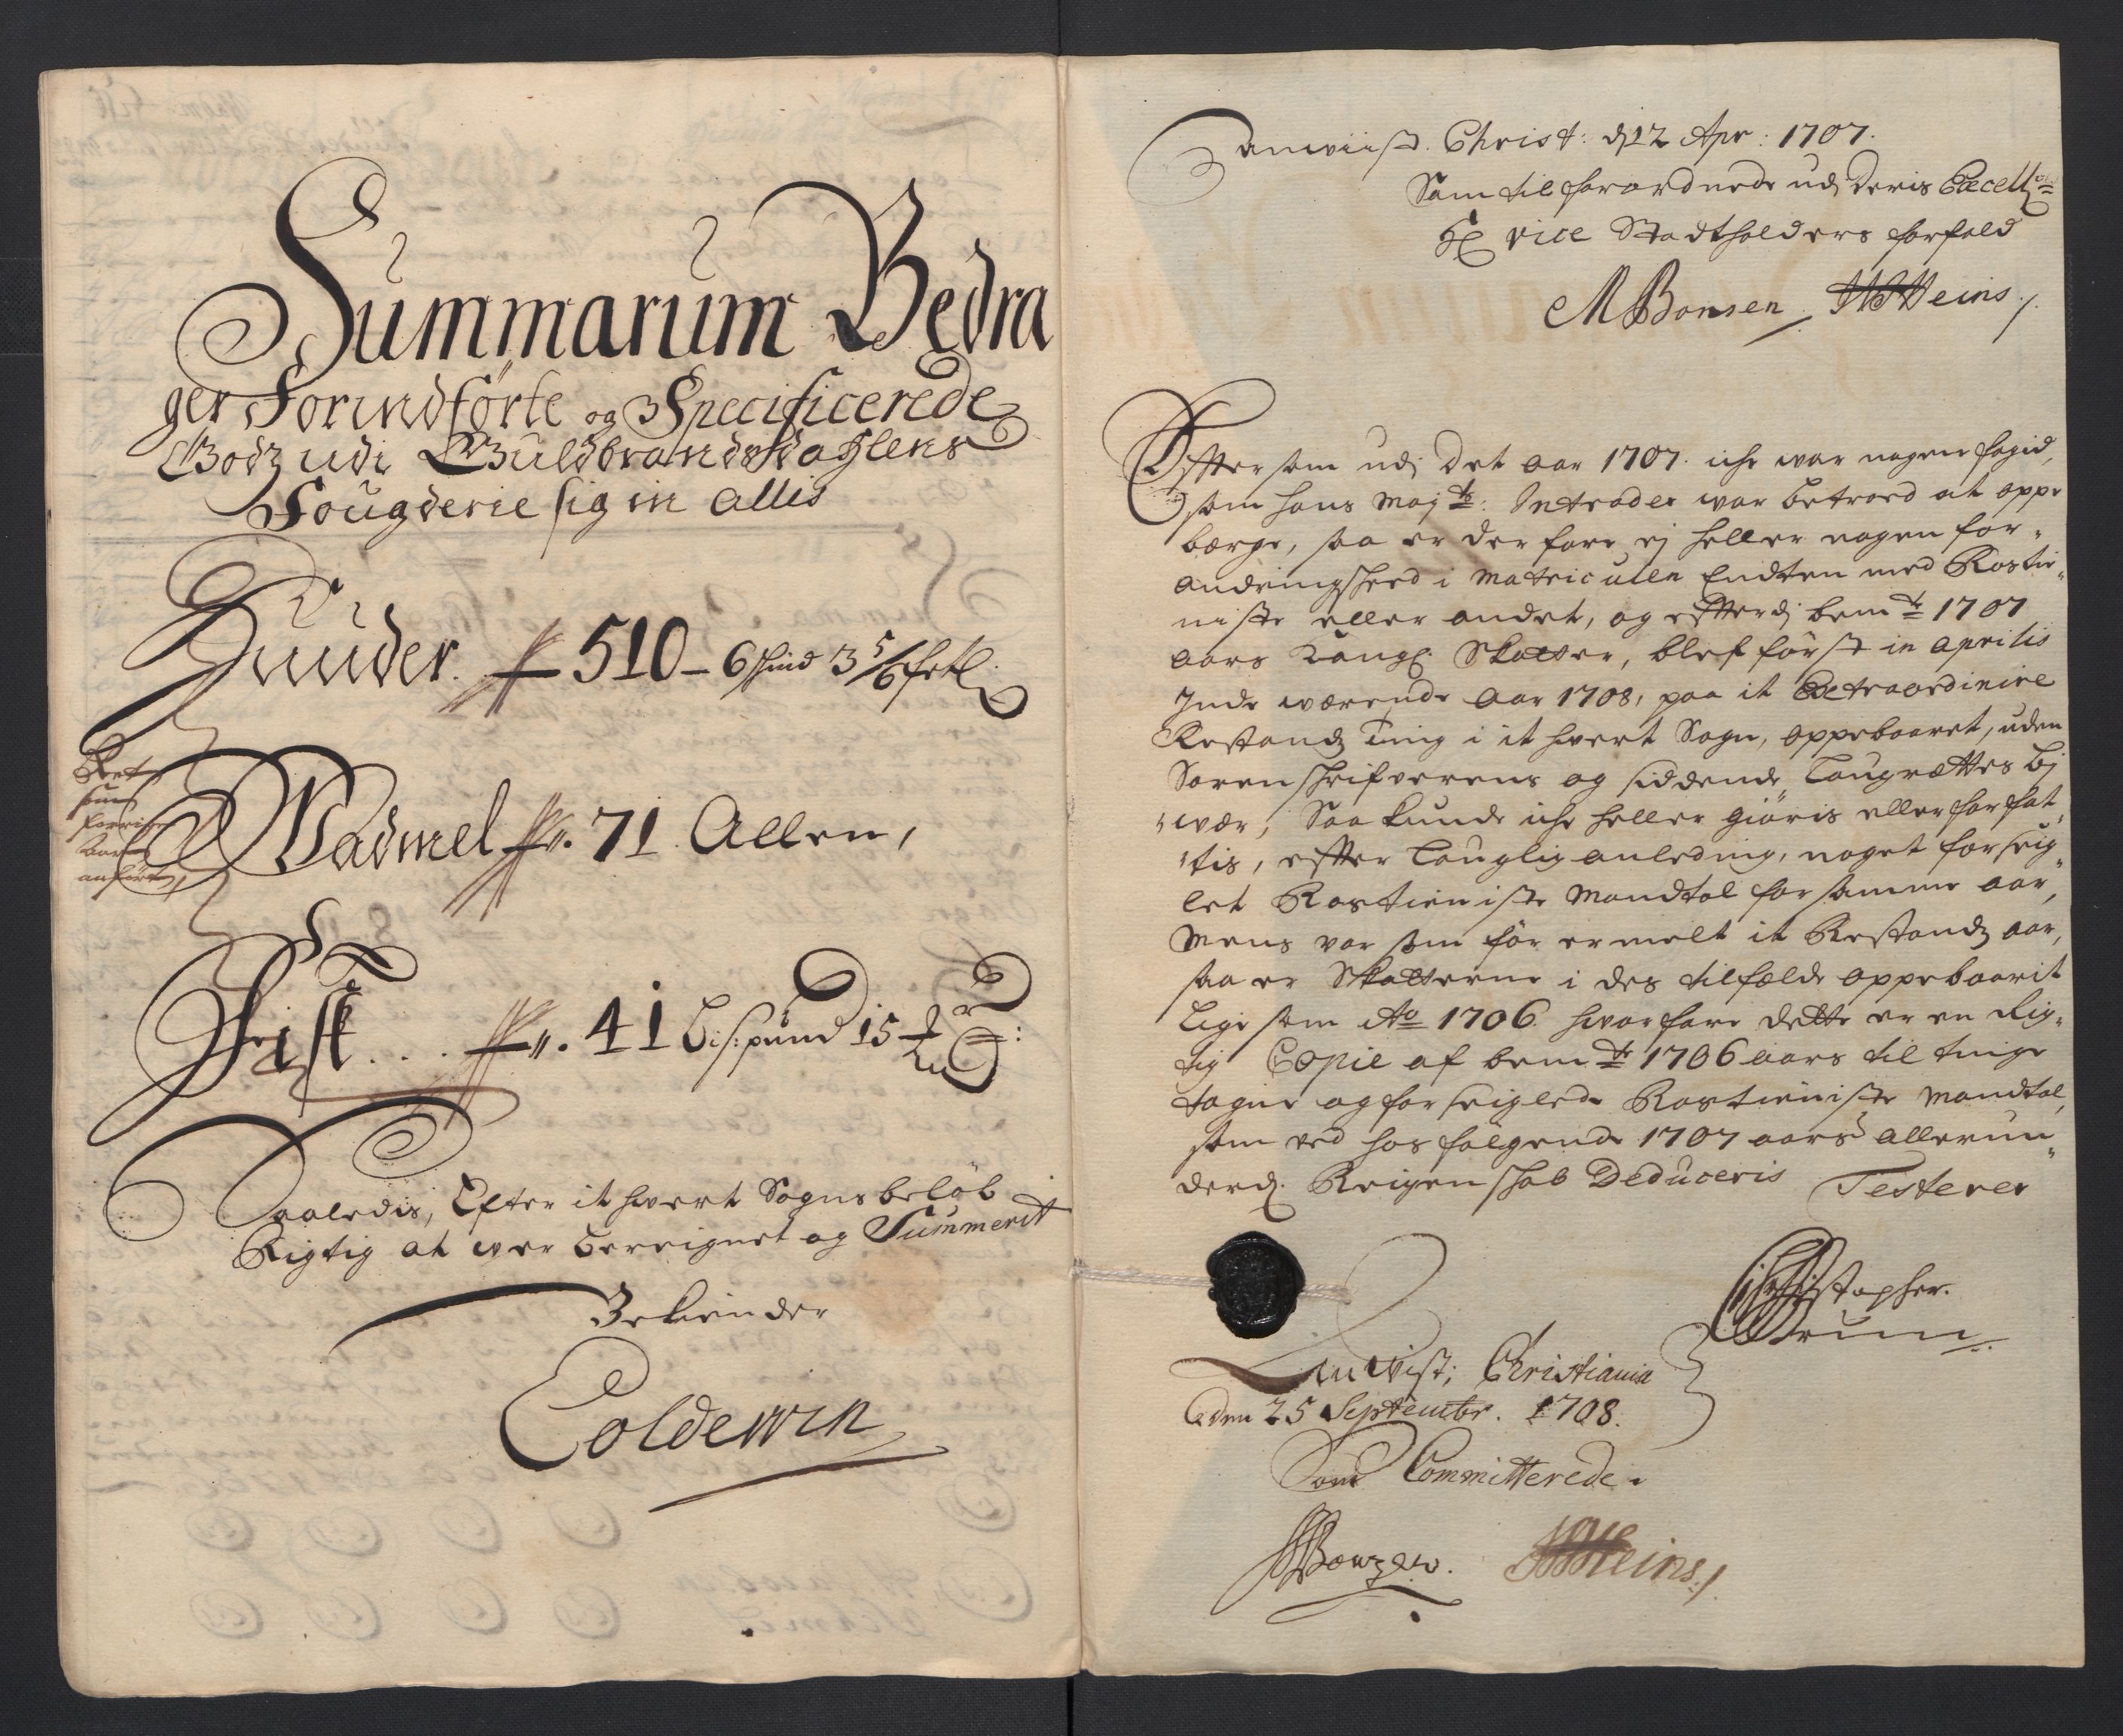 Summarum Bedra
ger Forindførte og Specificerede
Godz udi Guldbrandsdahlens
Fougderie sig in Allis
Huuder. 510 - 6 skind 3 5/6
som
forrige
Aar
anført,
Wadmel 71. Allen,
Fisk . . . 41 Bis:pund 15
Saaledis, Efter it hvert Sogns beløb
Rigtig at wer bereignet og Summerit
Bekiender
Coldewin
Anwiist. Christ: d 12 Apr: 1707.
Som tilforordnede udj Deris Excell
H vice Stadtholders forfald
MBonsen Heins
Effter som udj det aar 1707. iche war nogen fogid,
som hans Maj ts: Intrader war betroed at oppe
børge, saa er der fore ej heller nogen for-
andringshed i Matriculen Endten med Rostie-
niste eller andet, og effterdj bem te 1707
aars Kongl. Skatter, blef først in Aprilis
Inde werende Aar 1708, paa it Extraordinire
Restandz Ting i it hwert Sogn, oppebaaret, uden
Sorenschrifverens og siddende Laugrættes bj
wær, Saa kunde iche heller giøris eller forfat-
tis, effter Lauglig anledning, noget forseig-
let Rostieniste Mandtal for samme aar,
Mens var som før ermelt it Restandz aar,
saa er Skatterne i des tilfælde oppebaarit
Lige som Ao 1706. hworfore dette er en Rig-
tig Copie af bem te 1706 aars til tinge
tagne og forseiglede Rostieniste Mandtal,
som ved hos følgende 1707 aars allerun-
derd. Reigenskab Deduceris Testerer
Christopher.
Strum
Anvist; Christiania
den 25 Septembr. 1708.
Som Committerede.
Heins